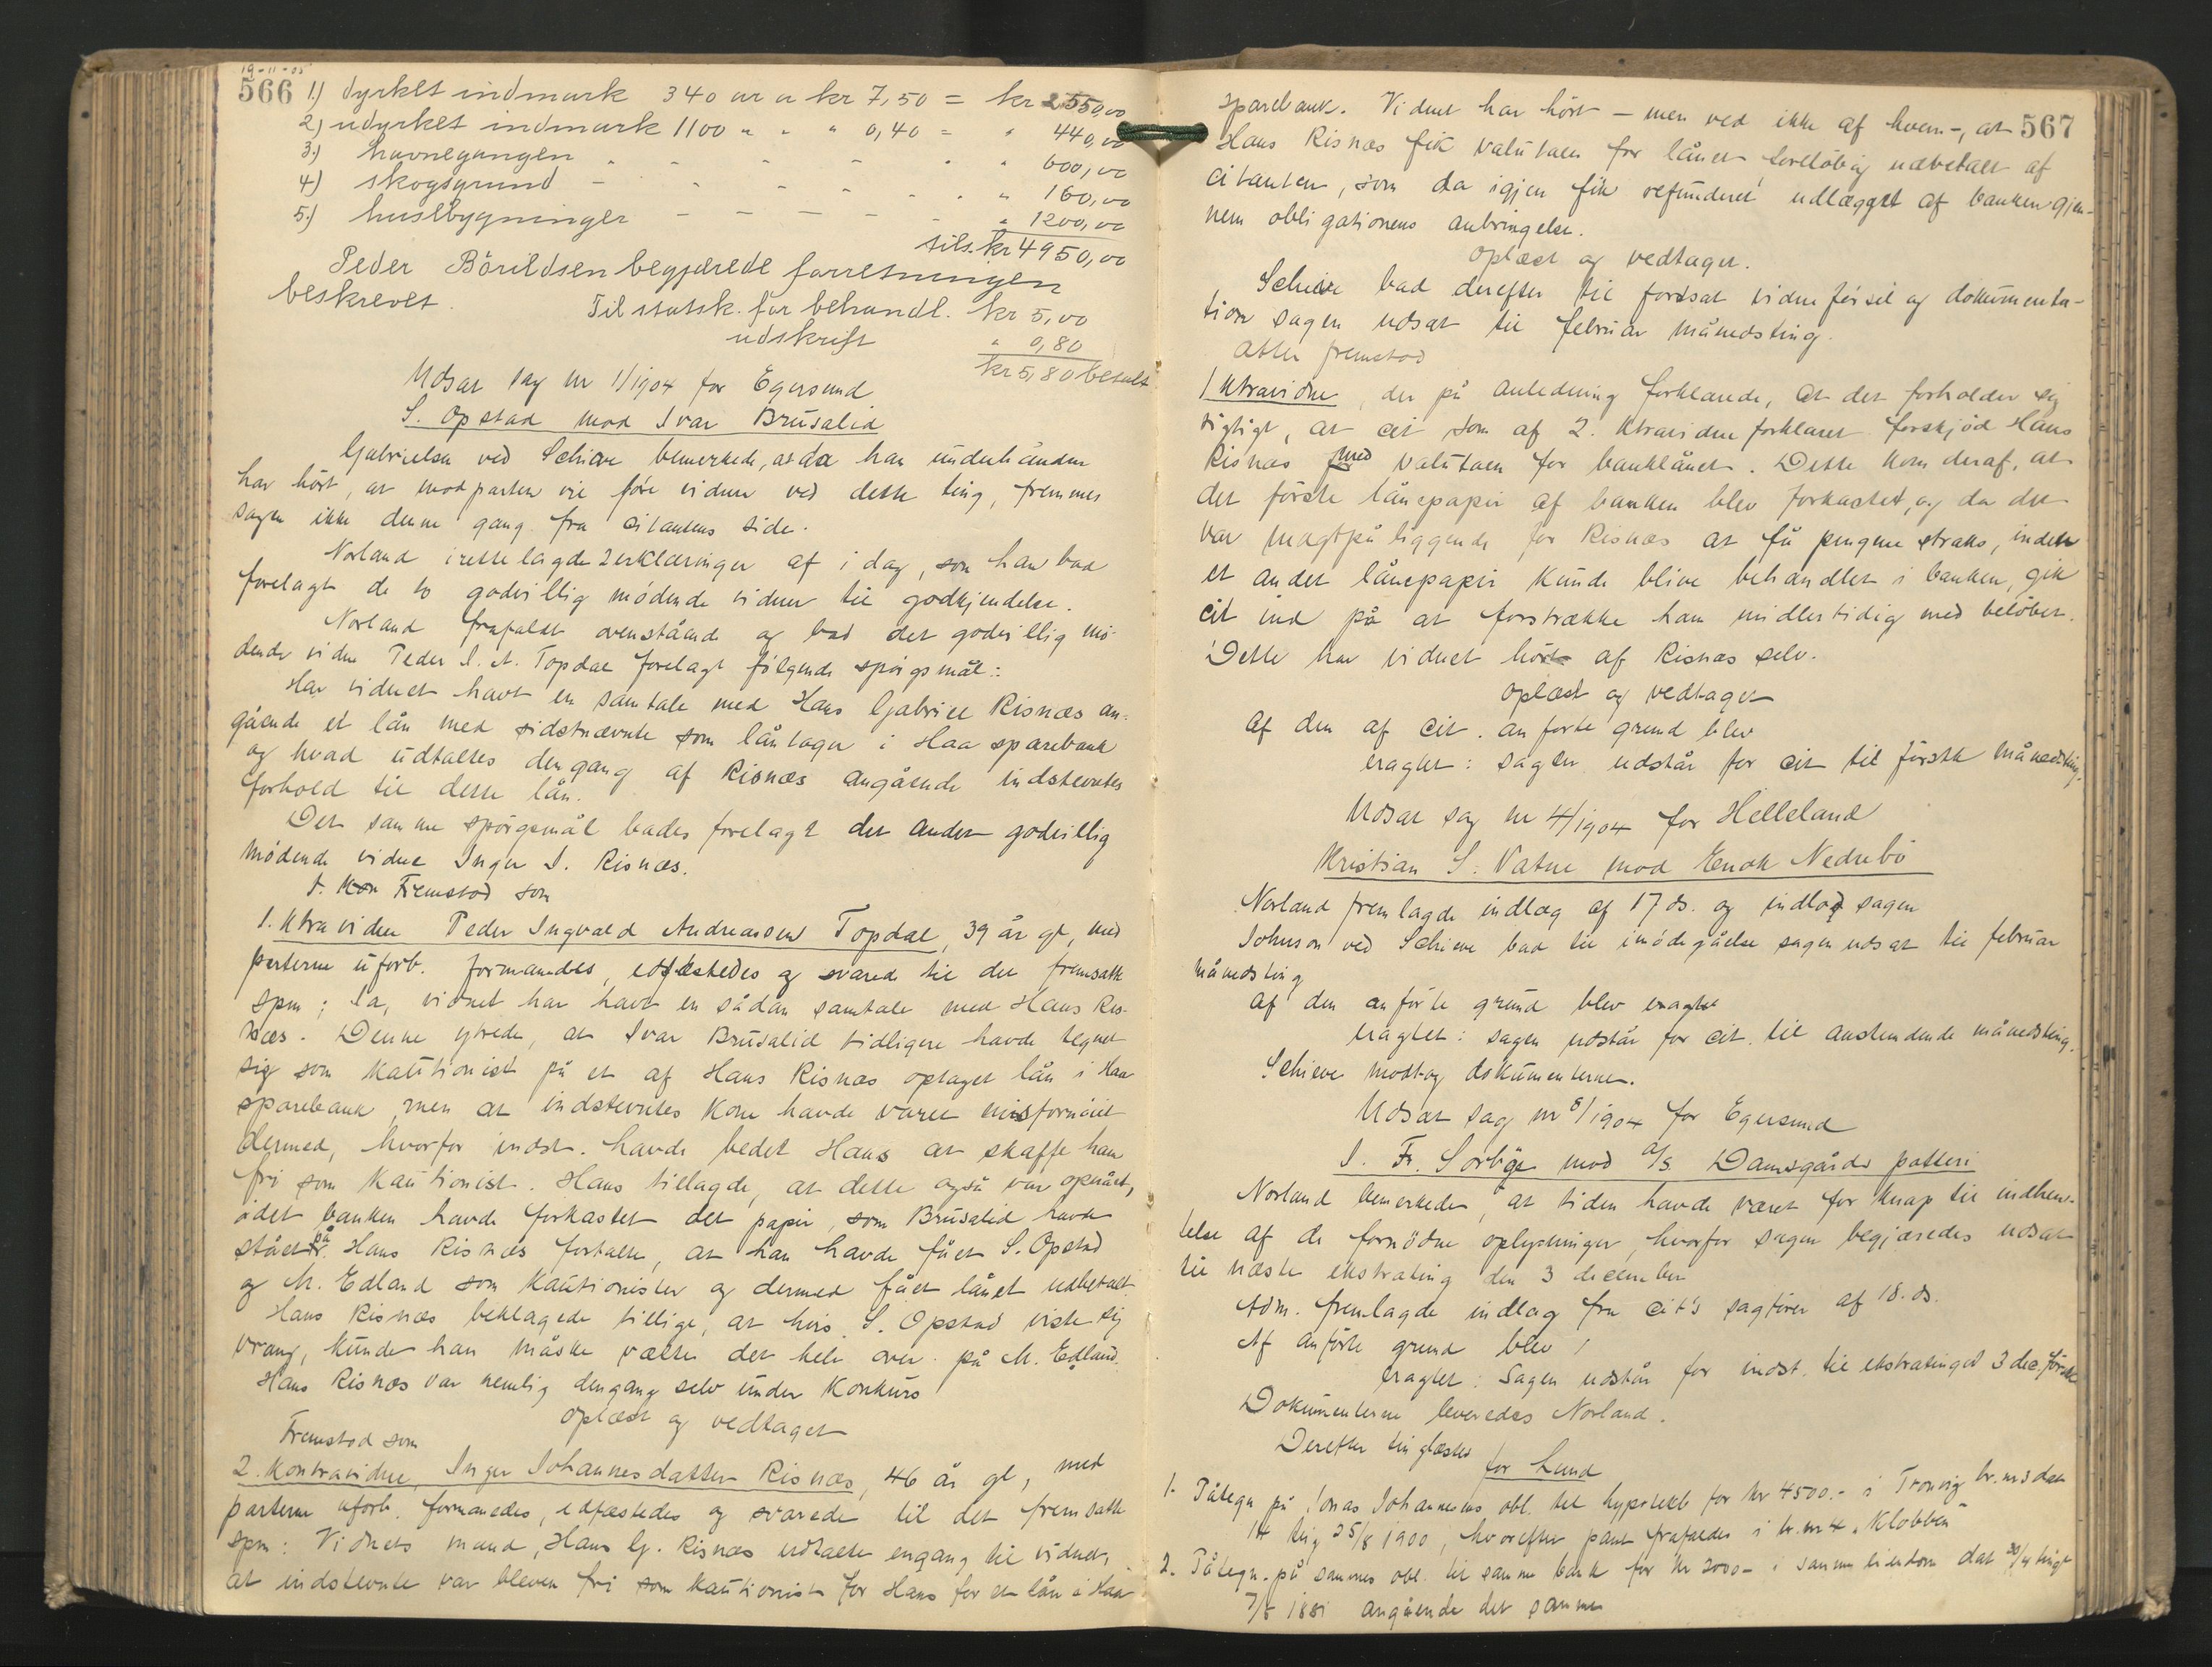 19-11-05
566 1) dyrket indmark 340 ar a kr 7,50 = kr 2550,00
2) udyrket indmark 1100 " " " 0,40 = " 440,00
3) havnegangen " - - - " " 600,00
4) skogsgrund - - - - - " 160,00
5) husebygninger - - - - - " 1200,00
tils. kr 4950,00
Peder Börildsen begjærede forretningen
beskrevet.
Til statsk. for behandl. kr 5,00
udskrift " 0,80
kr 5,80 betalt
Udsat sag nr 1/1904 for Egersund
S. Opstad mod Ivar Brusalid
Gabrielsen ved Schiøve bemerkede, at da han underhånden
har hört, at modparten vil före vidner ved dette ting, fremmes
sagen ikke denne gang fra citantens side.
Norland irettelagde 2 erklæringer af i dag, som han bad
forelagt de to godvillig mödende vidner til godkjendelse.
Norland frafaldt ovenstående og bad det godvillig mö-
dende vidne Peder I. A. Topdal forelagt fölgende spörgsmål:
Har vidnet havt en samtale med Hans Gabriel Risnæs an-
gående et lån med sidstnævnte som låntager i Haa sparebank
og hvad udtaltes dengang af Risnæs angående indstevntes
forhold til dette lån.
Det samme spörgsmål bades forelagt det andet godvillig
mödende vidne Inger I. Risnæs.
Fremstod som
1. Ktravidne Peder Ingvald Andreassen Topdal, 39 år gl, med
parterne uforb. formanedes, edfæstedes og svared til det fremsatte
spm: Ja, vidnet har havt en sådan samtale med Hans Ris-
næs. Denne ytrede, at Ivar Brusalid tidligere havde tegnet
sig som kautionist på et af Hans Risnæs optaget lån i Haa
sparebank, men at indstevntes kone havde været misfornöiet
dermed, hvorfor indst. havde bedet Hans at skaffe ham
fri som kautionist. Hans tillagde, at dette også var opnået,
idet banken havde forkastet det papir, som Brusalid havde
stået på. Hans Risnæs fortalte, at han havde fået S. Opstad
og M. Edland som kautionister og dermed fået lånet udbetalt.
Hans Risnæs beklagede tillige, at hvis S. Opstad viste sig
vrang, kunde han måske vælte det hele over på M. Edland.
Hans Risnæs var nemlig dengang selv under konkurs
Oplæst og vedtaget
Fremstod som
2. Kontravidne, Inger Johannesdatter Risnæs, 46 år gl, med
parterne uforb. formanedes, edfæstedes og svarede til det fremsatte
spm: Vidnets mand, Hans G. Risnæs udtalte engang til vidnet,
at indstevnte var bleven fri som kautionist for Hans for et lån i Haa
567
sparebank. Vidnet har hört - men ved ikke af hvem -, at
Hans Risnæs fik valutaen for lånet foreløbig udbetalt af
citanten, som da igjen fik refunderet udlægget af banken gjen-
nem obligationens anbringelse.
Oplæst og vedtaget.
Schiøve bad derefter til fortsat vidneförsel og dokumenta-
tion sagen udsat til februar månedsting.
Atter fremstod
1 Ktravidne, der på anledning forklarede, at det forholder sig
rigtigt, at cit som af 2. ktravidne forklaret forskjöd Hans
Risnæs med valutaen for banklånet. Dette kom deraf, at
det förste lånepapir af banken blev forkastet, og da det
var magtpåliggende for Risnæs at få pengene straks, inden
et andet lånepapir kunde blive behandlet i banken, gik
cit ind på at forstrække ham midlertidig med belöbet.
Dette har vidnet hört af Risnæs selv.
oplæst og vedtaget
Af den af cit. anförte grund blev
eragtet: sagen udstår for cit til förste månedsting.
Udsat sag nr 4/1904 for Helleland
Kristian S. Vatne mod Enok Nedrebö
Norland fremlagde indlæg af 17 ds. og indlod sagen
Johnson ved Schiøve bad til imödegåelse sagen udsat til februar
månedsting
Af den anförte grund blev eragtet
eragtet: sagen udstår for cit. til anstundende månedsting.
Schiøve modtog dokumenterne.
Udsat sag nr 8/1904 for Egersund
I. Fr. Sorböe mod A/S Damsgårds potteri
Norland bemerkede, at tiden havde været for knap til indhen-
telse af de fornödne oplysninger, hvorfor sagen begjæredes udsat
til næste ekstrating den 3 december
Adm. fremlagde indlæg fra cit's sagförer af 18. ds.
Af anförte grund blev
eragtet: Sagen udstår for indst. til ekstratinget 3 dec. förste
Dokumenterne leveredes Norland.
Derefter tinglæstes
for Lund
1. Påtegn. på Jonas Johannesens obl. til hypotekb for kr 4500.- i Tronvig br.nr 3 dat
14 tlg 25/8 1900, hvorefter pant frafaldes i br.nr 4 "Klobben"
2. Påtegn. på sammes obl. til samme bank for kr 2000- i samme eiendom dat 30/4 tingl
7/5 1881 angående det samme